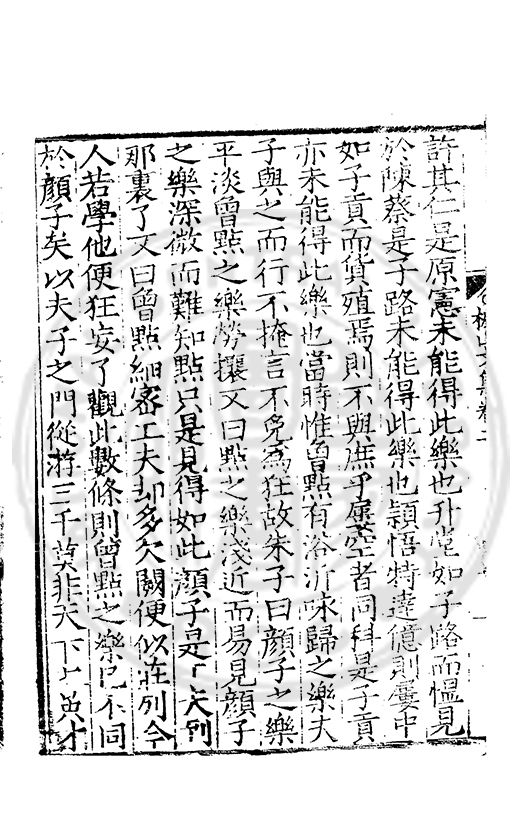 許其仁是原憲未能得此樂也升堂如子路而慍見
於陳蔡是子路未能得此樂也頴悟特達億則屢中
如子貢而貨殖焉則不與庶乎屢空者同科是子貢
亦未能得此樂也當時惟曾點有浴沂咏歸之樂夫
子與之而行不掩言不免為狂故朱子曰顔子之樂
平淡曾點之樂勞攘又曰點之樂淺近而易見顔子
之樂深微而難知點只是見得如此顔子是工夫到
那裏了又曰曾點細密工夫却多欠闕便似莊列今
人若學他便狂妄了觀此數條則曾點之樂已不同
於顔子矣以夫子之門從游三千莫非天下英才